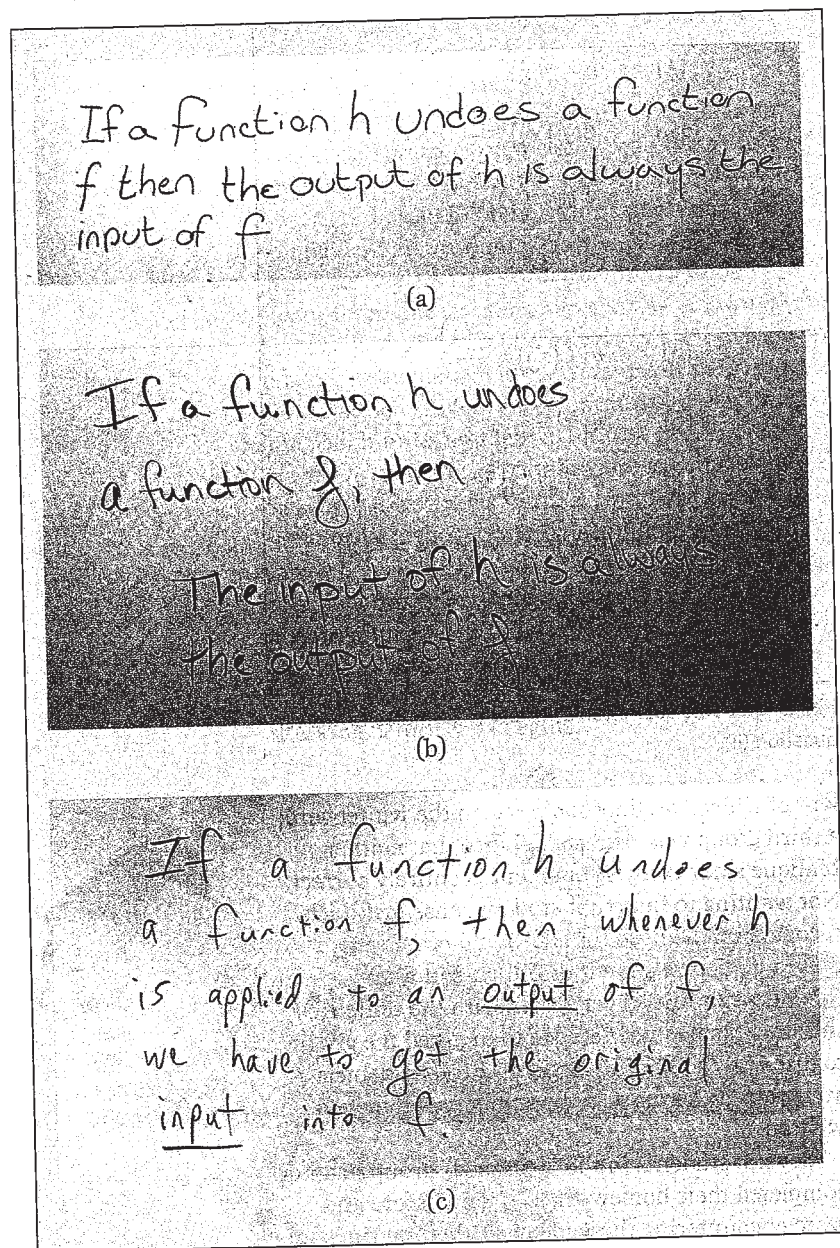 If a function h undoes a function
f then the output of h is always the
input of f
(a)
If a function h undoes
a function f, then
The input of h is always
the output of f
(b)
If a function h undoes
a function f, then whenever h
is applied to an output of f,
we have to get the original
input into f.
(c)